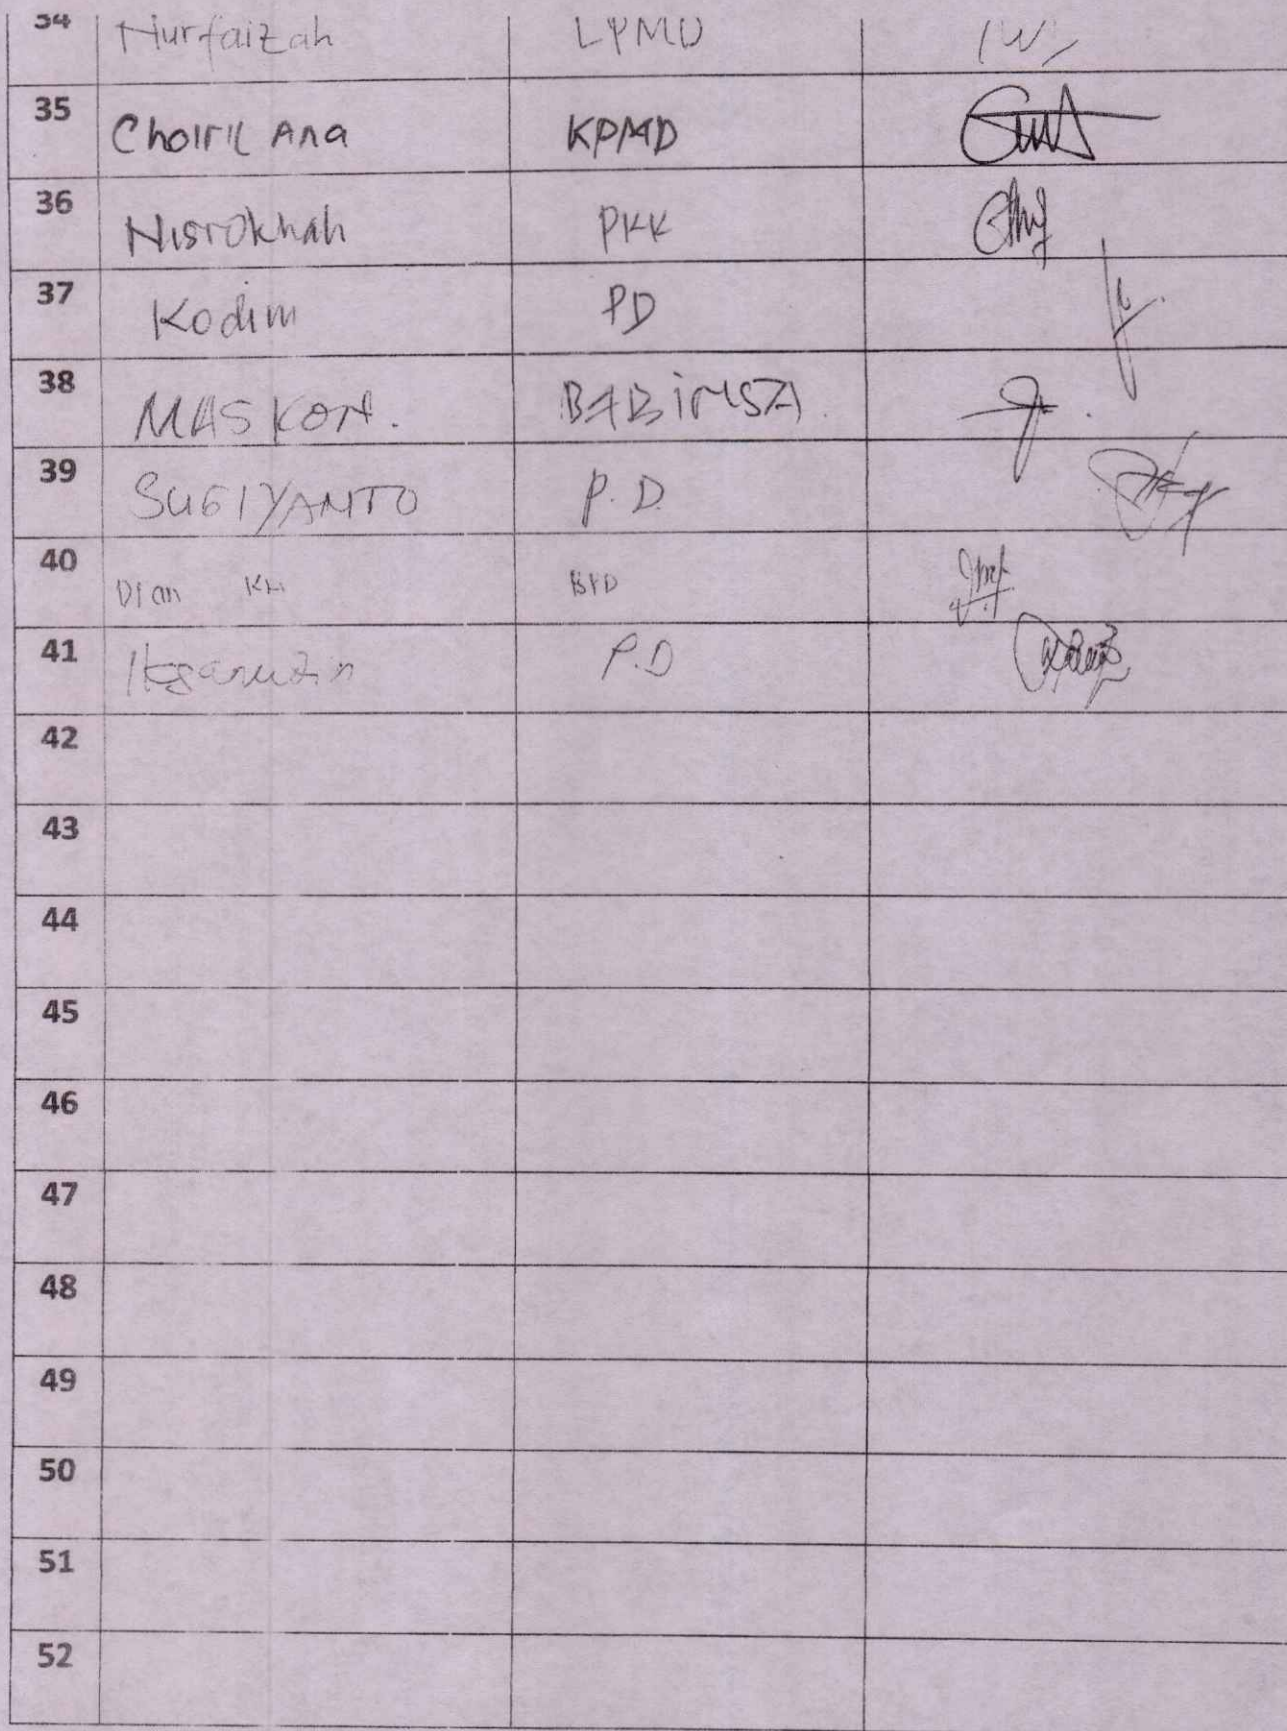 34 Nurfaizah LPMD
35 Choiril Ana KPMD
36 Nisrokhah PKK
37 Kodim PD
38 MASKON. BABINSA.
39 SUGIYANTO P.D.
40 Dian BPD
41 P.D
42
43
44
45
46
47
48
49
50
51
52